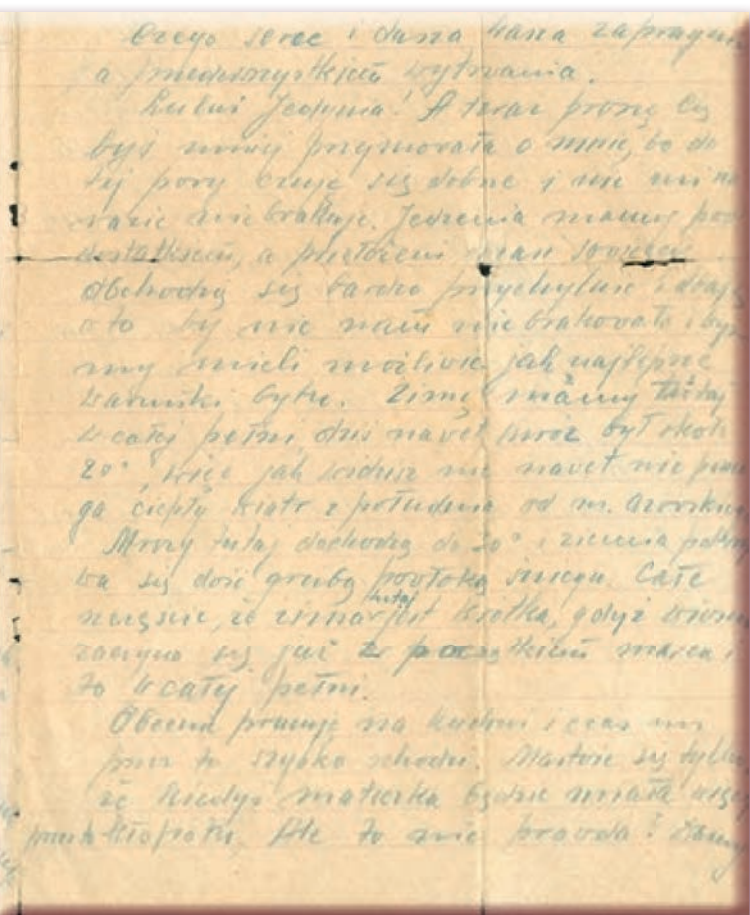 Czego serce i dusza Wasza zapragnie
a przedewszystkiem wytrwania.
Jedyna! A teraz proszę Cię
byś mniej przejmowała o mnie, bo do
tej pory czuję się dobrze i nic mi na
razie nie brakuje. Jedzenia mamy pod
dostatkiem, a przełożeni
obchodzą się bardzo przychylnie i dbają
o to by nic nam nie brakowało i by
my mieli możliwie jak najlepsze
warunki bytu. Zimę mamy tutaj
w całej pełni, dziś nawet mróz był około
20°, więc jak widzisz nie nawet nie poma
ga ciepły wiatr z południa od m. Azowskiego
Mrozy tutaj dochodzą do 30° i ziemia pokry
wa się dość grubą powłoką śniegu. Całe
szczęście, że zima tutaj jest krótka, gdyż wiosna
zaczyna się już z początkiem marca i
to w całej pełni.
Obecnie pracuję na kuchni i czas mi
przy to szybko schodzi. Martwię się tylko
że kiedyś mateczka będzie miała
kłopotu, Ale to nie prawda?